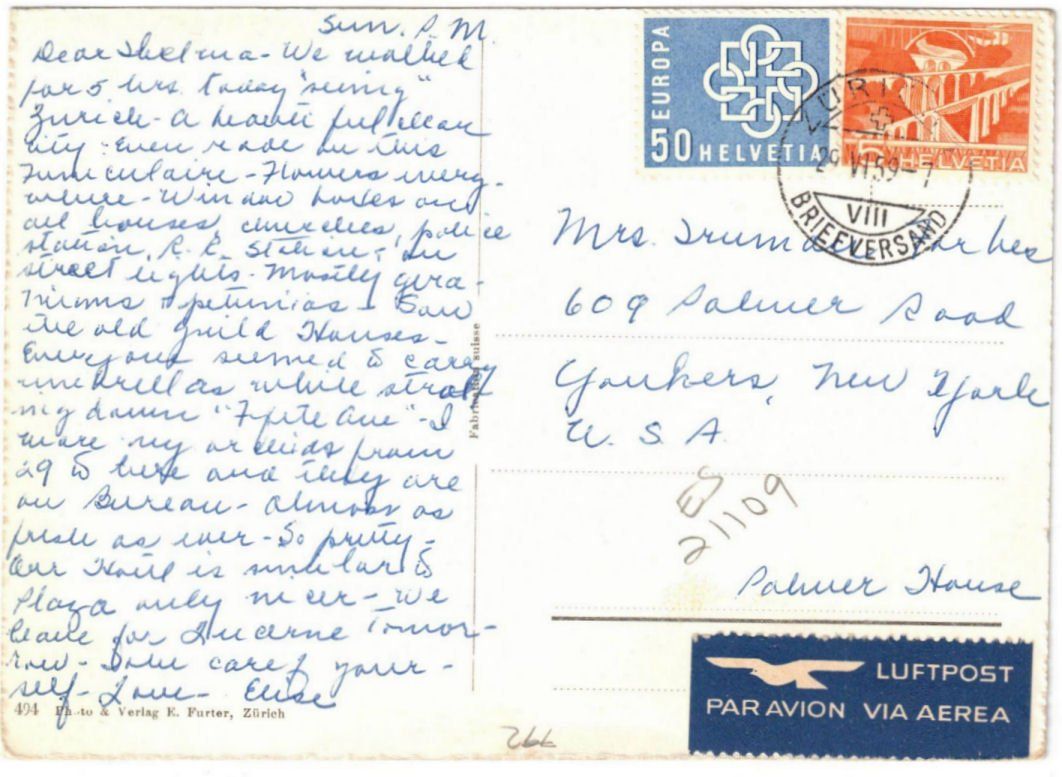 Sun. P.M.
Dear Thelma - We walked
for 5 hrs. today "seeing"
Zurich - A beautiful clean
city - Even rode on this
Funiculaire - Flowers every-
where - Window boxes on
all houses, churches, police
station, R.R. Station, - on
street lights - Mostly gera-
niums & petunias - Saw
the old guild Houses -
Everyone seemed to carry
umbrellas while stroll
ing down "Fifth Ave" - I
wore my orchids from
29 to here and they are
on Bureau - almost as
fresh as ever - So pretty -
Our Hotel is similar to
Plaza only nicer - We
leave for Lucerne Tomor-
row - Take care of your-
self - Love - Elise
494 Photo & Verlag E. Furter, Zürich
Fabrication suisse
EUROPA
50 HELVETIA
5 HELVETIA
ZÜRICH
29.VI.59-7
VIII
BRIEFVERSAND
Mrs. Truman Forbes
609 Palmer Road
Yonkers, New York
U. S. A.
21109
Palmer House
LUFTPOST
PAR AVION VIA AEREA
266